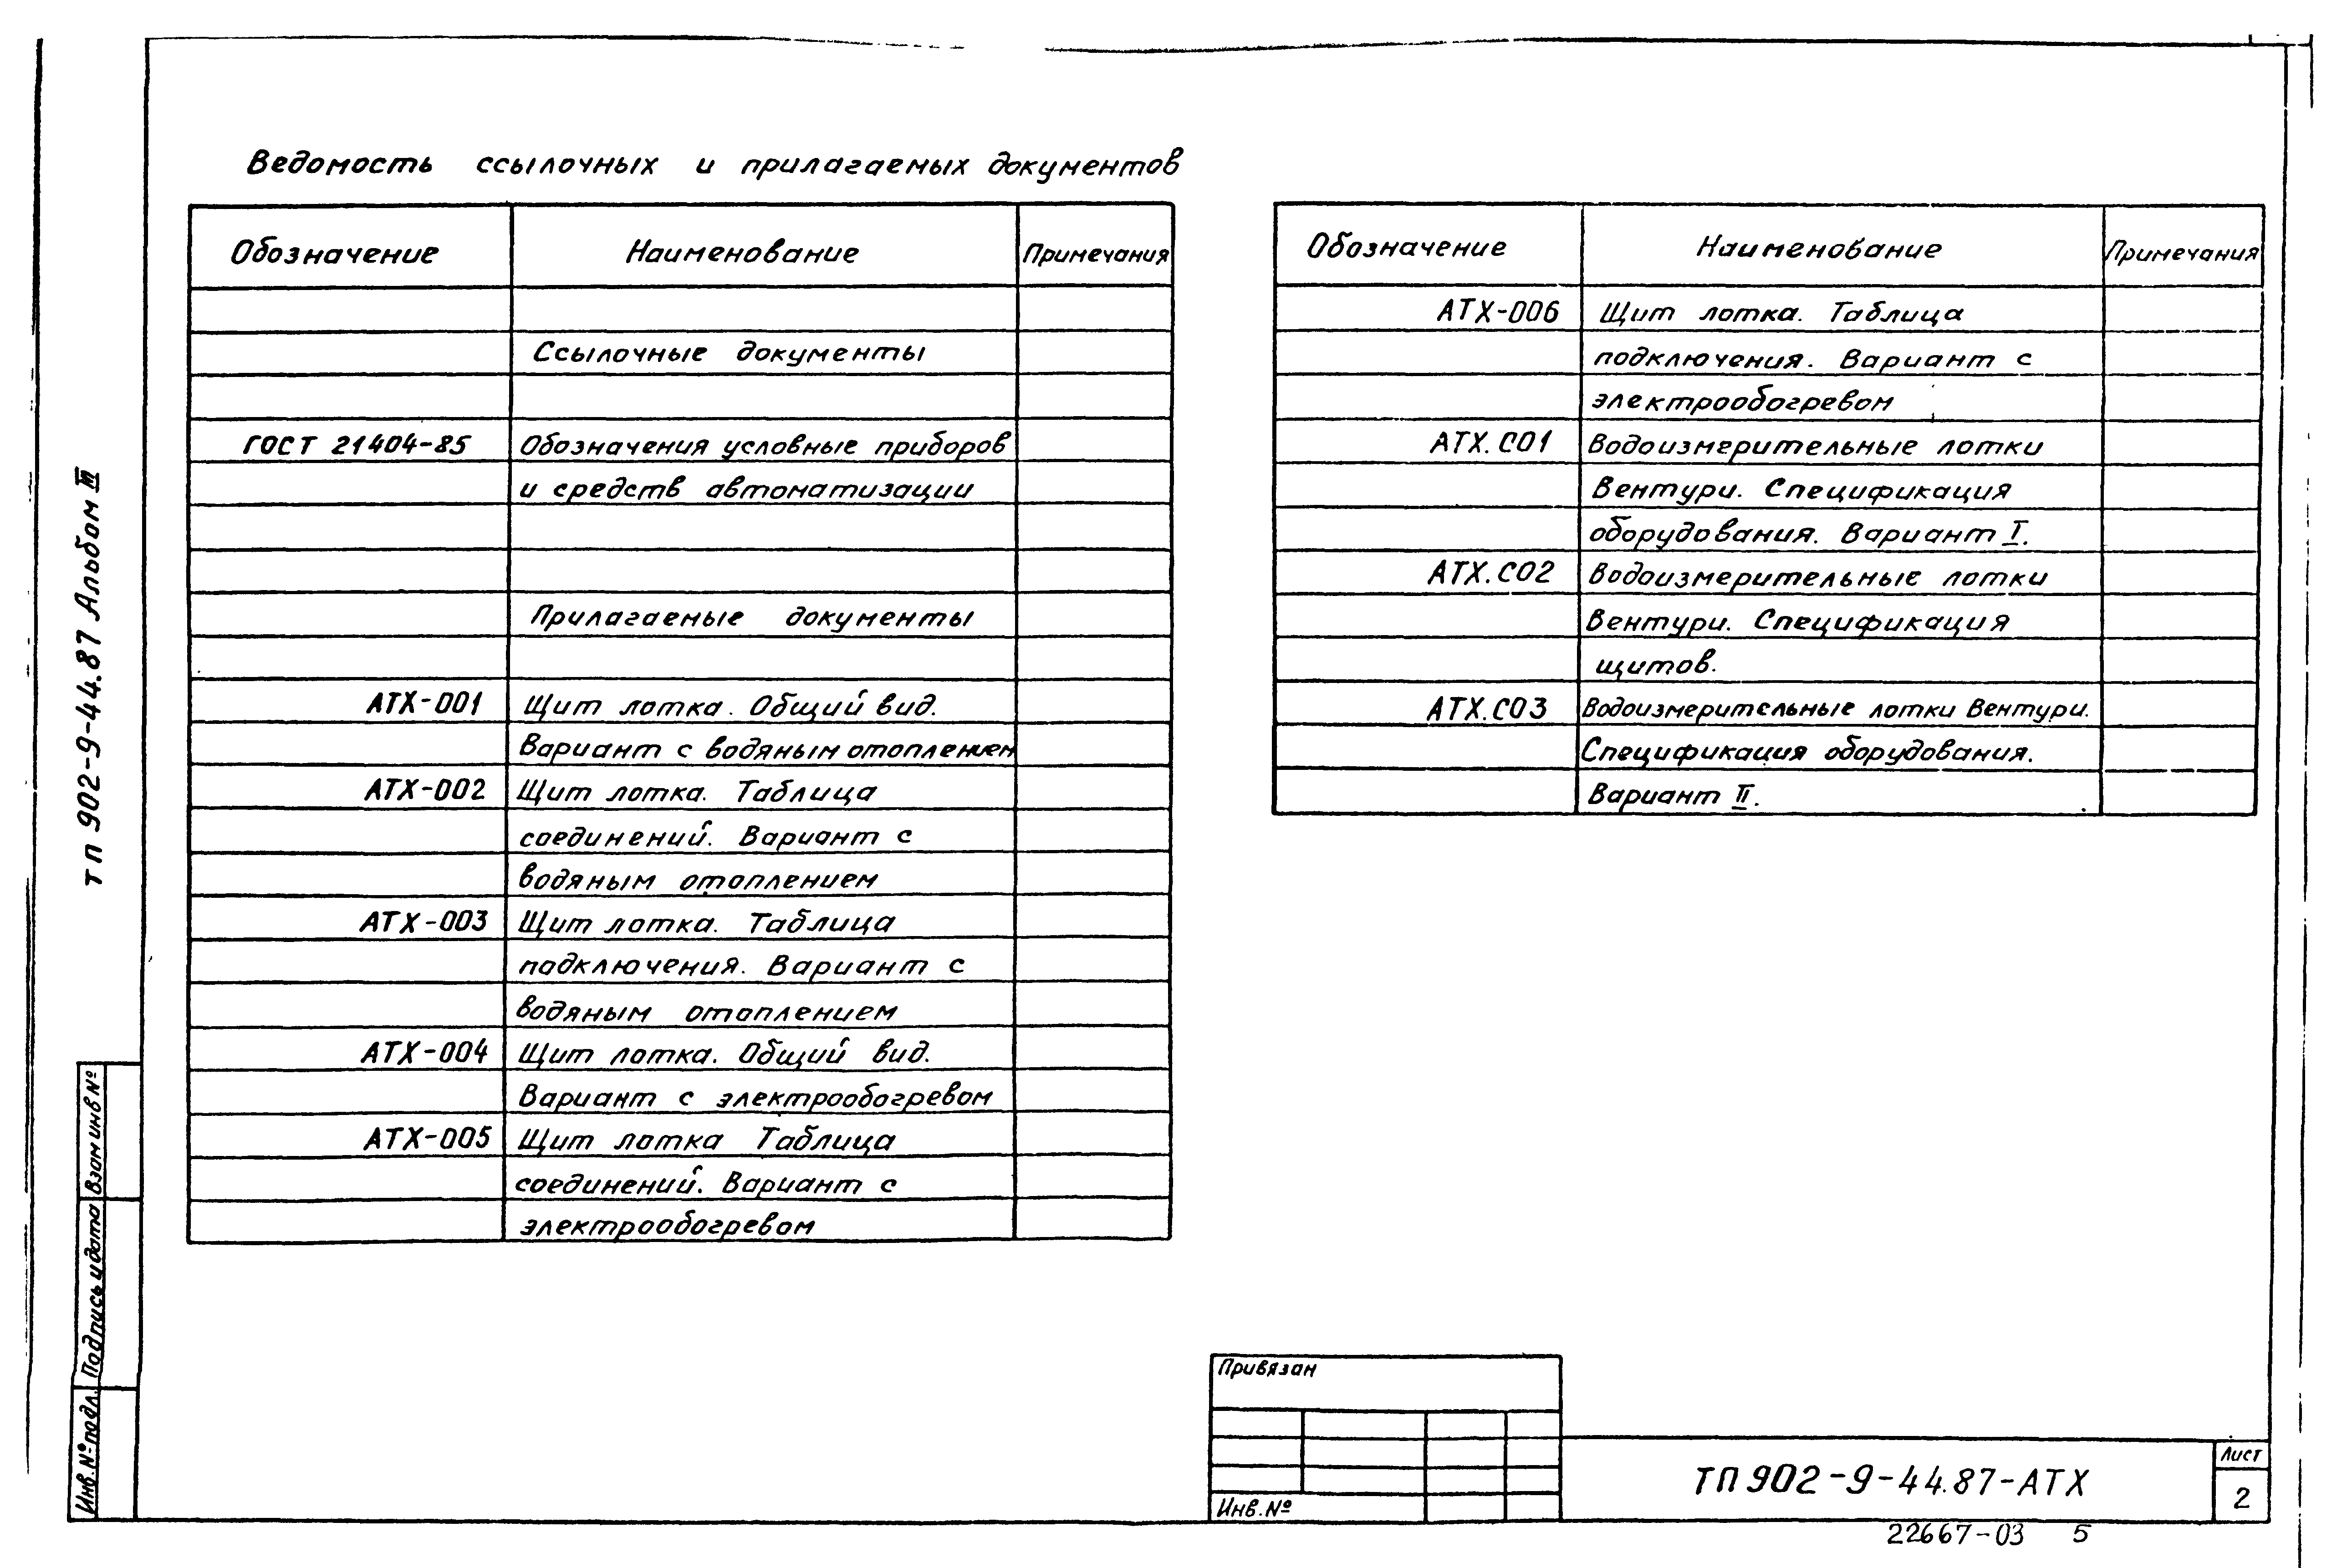 Ведомость ссылочных и прилагаемых документов
Обозначение Наименование Примечания
Ссылочные документы
ГОСТ 21404-85 Обозначения условные приборов
и средств автоматизации
Прилагаемые документы
АТХ-001 Щит лотка. Общий вид.
Вариант с водяным отоплением
АТХ-002 Щит лотка. Таблица
соединений. Вариант с
водяным отоплением
АТХ-003 Щит лотка. Таблица
подключения. Вариант с
водяным отоплением
АТХ-004 Щит лотка. Общий вид.
Вариант с электрообогревом
АТХ-005 Щит лотка Таблица
соединений. Вариант с
электрообогревом
Обозначение Наименование Примечания
АТХ-006 Щит лотка. Таблица
подключения. Вариант с
электрообогревом
АТХ.СО1 Водоизмерительные лотки
Вентури. Спецификация
оборудования. Вариант I.
АТХ.СО2 Водоизмерительные лотки
Вентури. Спецификация
щитов.
АТХ.СО3 Водоизмерительные лотки Вентури.
Спецификация оборудования.
Вариант II.
тп 902-9-44.87 Альбом III
Взам инв №
Подпись и дата
Инв. № подл.
Привязан
Инв. №
ТП 902-9-44.87-АТХ
Лист
2
22667-03 5